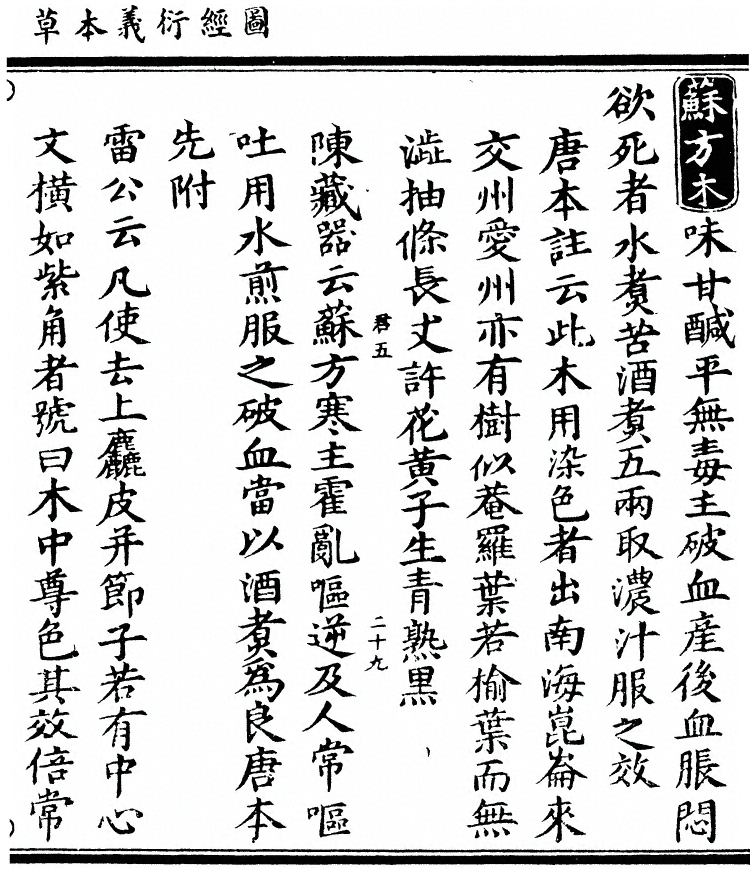 圖經衍義本草
蘇方木味甘鹹平無毒主破血産後血脹悶
欲死者水煑苦酒煑五兩取濃汁服之效
唐本註云此木用染色者出南海崑崙來
交州愛州亦有樹似菴羅葉若榆葉而無
澁抽條長丈許花黄子生青熟黒
君五
二十九
陳藏器云蘇方寒主霍亂嘔逆及人常嘔
吐用水煎服之破血當以酒煑爲良唐本
先附
雷公云凡使去上麤皮并節子若有中心
文橫如紫角者號曰木中尊色其效倍常